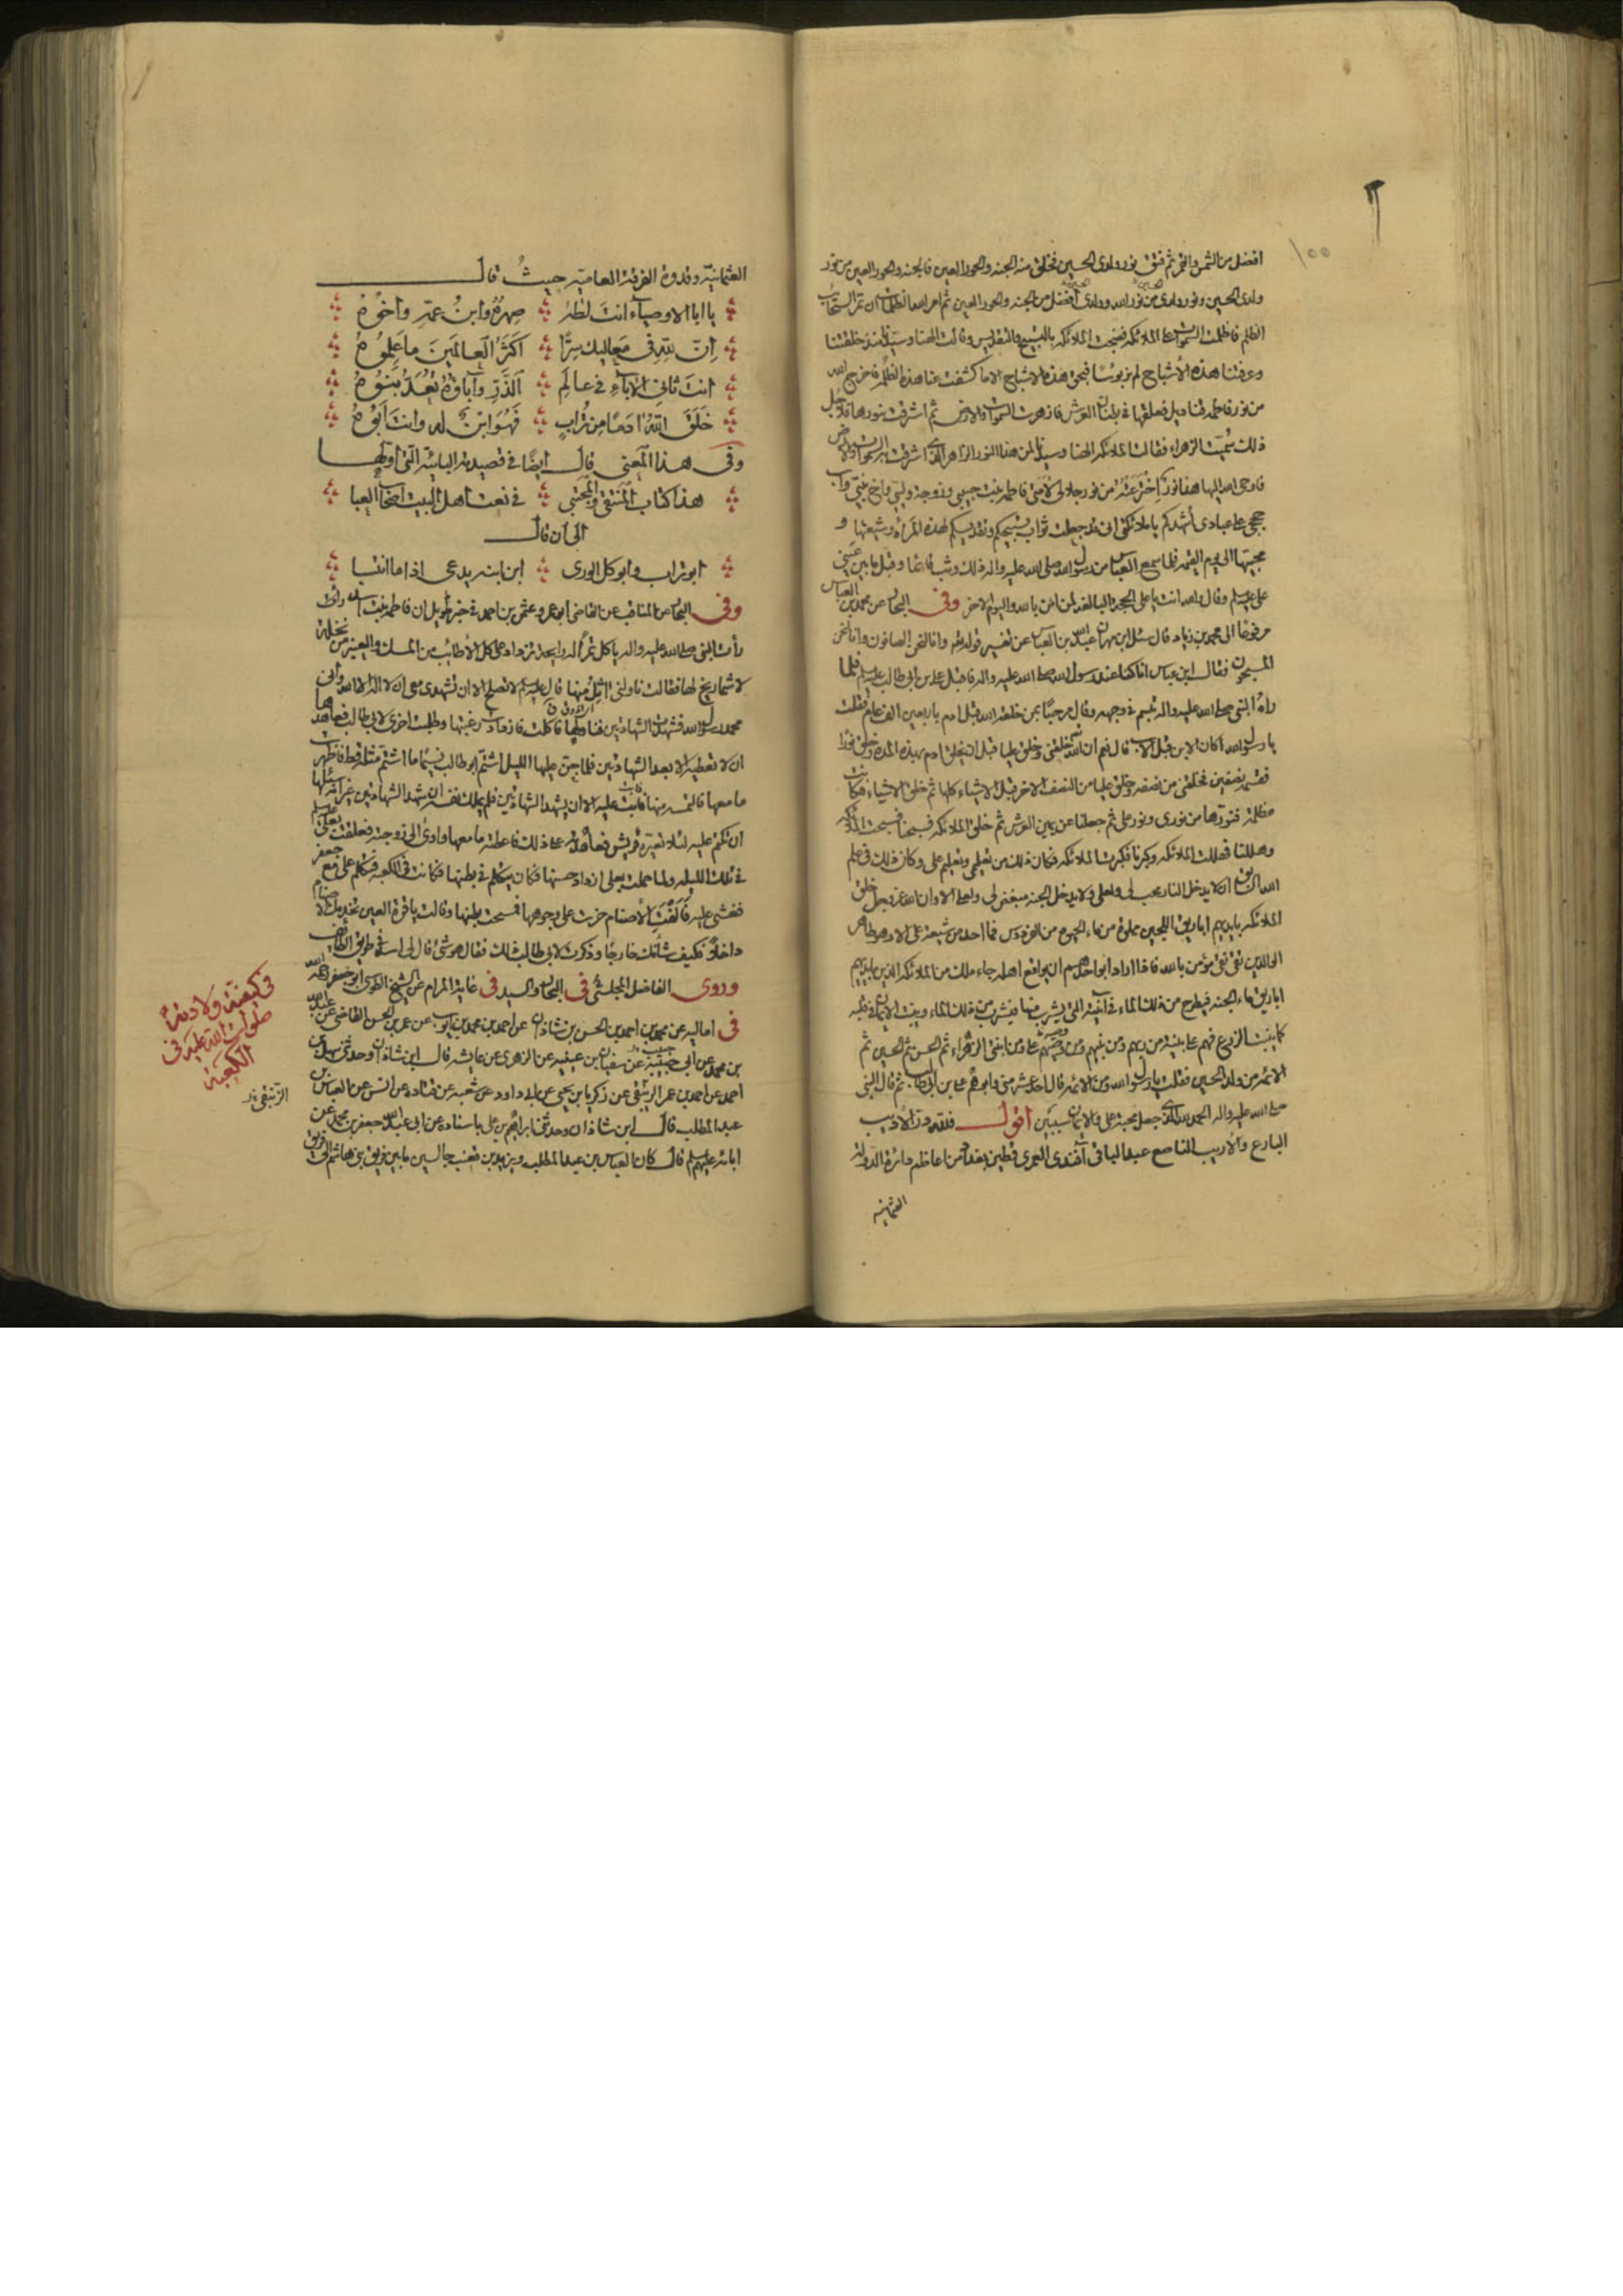 ١٠٠
افضل من الشمس والقمر ثم فتق نور ولدى الحسين فخلق منه الجنة والحور العين فالجنة والحور العين من نور
ولدى الحسين ونور ولدى من نور الله وولدى أفضل من الجنة والحور العين ثم امر الله الظلمات ان تمر السحاب
الظلم فاظلمت السموات على الملائكه فضجت الملائكه بالتسبيح والتقديس وقالت الهنا وسيدنا منذ خلقتنا
وعرفتنا هذه الأشباح لم نر بؤسًا فبحق هذه الاشباح الا ما كشفت عنا هذه الظلم فاخرج الله
من نور فاطمه قناديل فعلقها في بطنان العرش فازهرت السموات والارض ثم اشرقت بنورها فلاجل
ذلك سُمّيت الزهراء فقالت الملائكه الهنا وسيدنا لمن هذا النور الزاهر الذى اشرقت به السموات والارض
فاوحى الله اليها هذا نور اخترعته من نور جلالى لامتى فاطمه بنت حبيبى وزوجة وليى واخ نبيى واب
حججى على عبادى أشهدكم يا ملائكتى انى قد جعلت ثواب تسبيحكم وتقديسكم لهذه المرأة وشيعتها و
محبيها الى يوم القيمه فلما سمع العباس من رسول الله صلى الله عليه واله ذلك وثب قائما وقبل ما بين عينى
على عليه السلم وقال والله انت يا على الحجة البالغة لمن امن بالله واليوم الاخر وفى البحار عن محمد بن العباس
مرفوعا الى محمد بن زياد قال سئل ابن مهران عبد الله بن العباس عن تفسير قوله تعالى وانا لنحن الصافون وانا لنحن
المسبحون فقال ابن عباس انا كنا عند رسول الله صلى الله عليه واله فاقبل على بن ابى طالب عليه السلم فلما
راه النبى صلى الله عليه واله تبسم فى وجهه وقال مرحبًا بمن خلقه الله قبل ادم باربعين الف عام فقلت
يا رسول الله اكان الابن قبل الاب قال نعم ان الله تعالى خلقنى وخلق عليا قبل ان يخلق ادم بهذه المدة وخلق نورا
فقسمه نصفين فخلقنى من نصفه وخلق عليا من النصف الاخر قبل الاشياء كلها ثم خلق الاشياء فكانت
مظلمة فنورها من نورى ونور على ثم جعلنا عن يمين العرش ثم خلق الملائكه فسبحنا فسبحت الملائكه
وهللنا فهللت الملائكه وكبرنا فكبرت الملائكه فكان ذلك من تعليمى وتعليم على وكان ذلك فى علم
الله السابق ان لا يدخل النار محب لى ولعلى ولا يدخل الجنه مبغض لى ولعلى الا وان الله عز وجل خلق
الملائكه بايديهم اباريق اللجين مملوة من ماء الحيوة من الفردوس فما احد من شيعة على الا وهو طاهر
الوالدين تقى نقى مؤمن بالله فاذا اراد ابو احدهم ان يواقع اهله جاء ملك من الملائكه الذين بايديهم
اباريق ماء الجنه فيطرح من ذلك الماء فى آنيته التى يشرب منها فيشرب من ذلك الماء وينبت الايمان فى قلبه
كما ينبت الزرع فهم على بينة من ربهم ومن نبيهم ومن وصيهم على ومن ابنتى الزهراء ثم الحسن ثم الحسين ثم
الائمه من ولد الحسين فقلت يا رسول الله ومن الائمه قال احد عشر منى وابوهم على بن ابى طالب ثم قال النبى
صلى الله عليه واله الحمد لله الذى جعل محبة على والايمان سببين اقول فلله در الأديب
البارع والاريب الناصع عبد الباقى آفندى العمرى قطين بغداد من اعاظم دائرة الدولة
العثمانيه
العثمانيّة وقدوة الفرقة العاميّه حيث قال
يا ابا الاوصياء انت لطه صهرُه وابنُ عمّه واخوُه
اِنّ للّه فى مَعاليك سِرًّا اَكثَرُ العالَمينَ ما عَلِموُه
انتَ ثانى الآباءِ فى عالَمِ الذّرِ وآباؤه تُعَدُّ بَنوُه
خَلَقَ اللهُ ادَمًا مِن تُرابٍ فَهُوَ ابنٌ له وانتَ اَبوُه
وفى هذا المعنى قال ايضًا فى قصيدته البائية التى اولها
هذا كتاب المنتقى والمجتبى فى نعت اهل البيت اصحاب العبا
الى ان قال
ابو تراب وابو كل الورى ابن ابنه يدعى اذا ما انتسبا
وفى البحار عن المناقب عن القاضى ابو عمرو عثمن بن احمد فى خبر طويل ان فاطمه بنت اسد رأت
رأت النبى صلى الله عليه واله يأكل تمرًا له رايحة تزداد على كل الأطائب من المسك والعنبر من نخلة
لا شماريخ لها فقالت ناولنى انل منها قال عليه السلم لا تصلح الا ان تشهدى معى ان لا اله الا الله وانى
محمد رسول الله فشهدت الشهادتين فناولها فاكلت فازدادت رغبتها وطلبت اخرى لابى طالب فعاهدها
ان لا تعطيه الا بعد الشهادتين فلما جن عليها الليل اشتم ابو طالب نسيما ما اشتم مثله قط فاظهرت
ما معها فالتمسه منها فابت عليه الا ان يشهد الشهادتين فلم يملك نفسه ان شهد الشهادتين غير انه سئلها
ان تكتم عليه لئلا تعيره قريش فعاهدته على ذلك فاعطته ما معها واوى الى زوجته فعلقت بعلى عليه السلم
فى تلك الليله ولما حملت بعلى ازداد حسنها فكان يتكلم فى بطنها فكانت فى الكعبه فتكلم على مع جعفر
فغشى عليه فالتفتت الأصنام خرت على وجوهها فمسحت بطنها وقالت يا قرة العين تخدمك الاصنام
داخلًا فكيف شأنك خارجًا وذكرت لابى طالب ذلك فقال هو شىء قال لى اسد فى طريق الطائف
وروى الفاضل المجلسى فى البحار والسيد فى غاية المرام عن الشيخ الطوسى ابو جعفر رحمه الله
فى اماليه عن محمد بن احمد بن الحسن بن شاذان عن احمد بن محمد بن ايوب عن عمر بن الحسن القاضى عن عبد الله
بن محمد عن ابى حبيبة عن سفيان بن عيينه عن الزهرى عن عايشه قال ابن شاذان وحدثنى سهل بن
احمد عن احمد بن عمر الربيقى عن زكريا بن يحيى عن ابى داود عن شعبه عن قتاده عن انس عن العباس بن
عبد المطلب قال ابن شاذان وحدثنى ابراهيم بن على باسناده عن ابى عبد الله جعفر بن محمد عن
ابائه عليهم السلم قال كان العباس بن عبد المطلب ويزيد بن قعنب جالسين ما بين فريق بنى هاشم الى فريق
فى كيفيّة ولادته
صلوات الله عليه فى
الكعبة